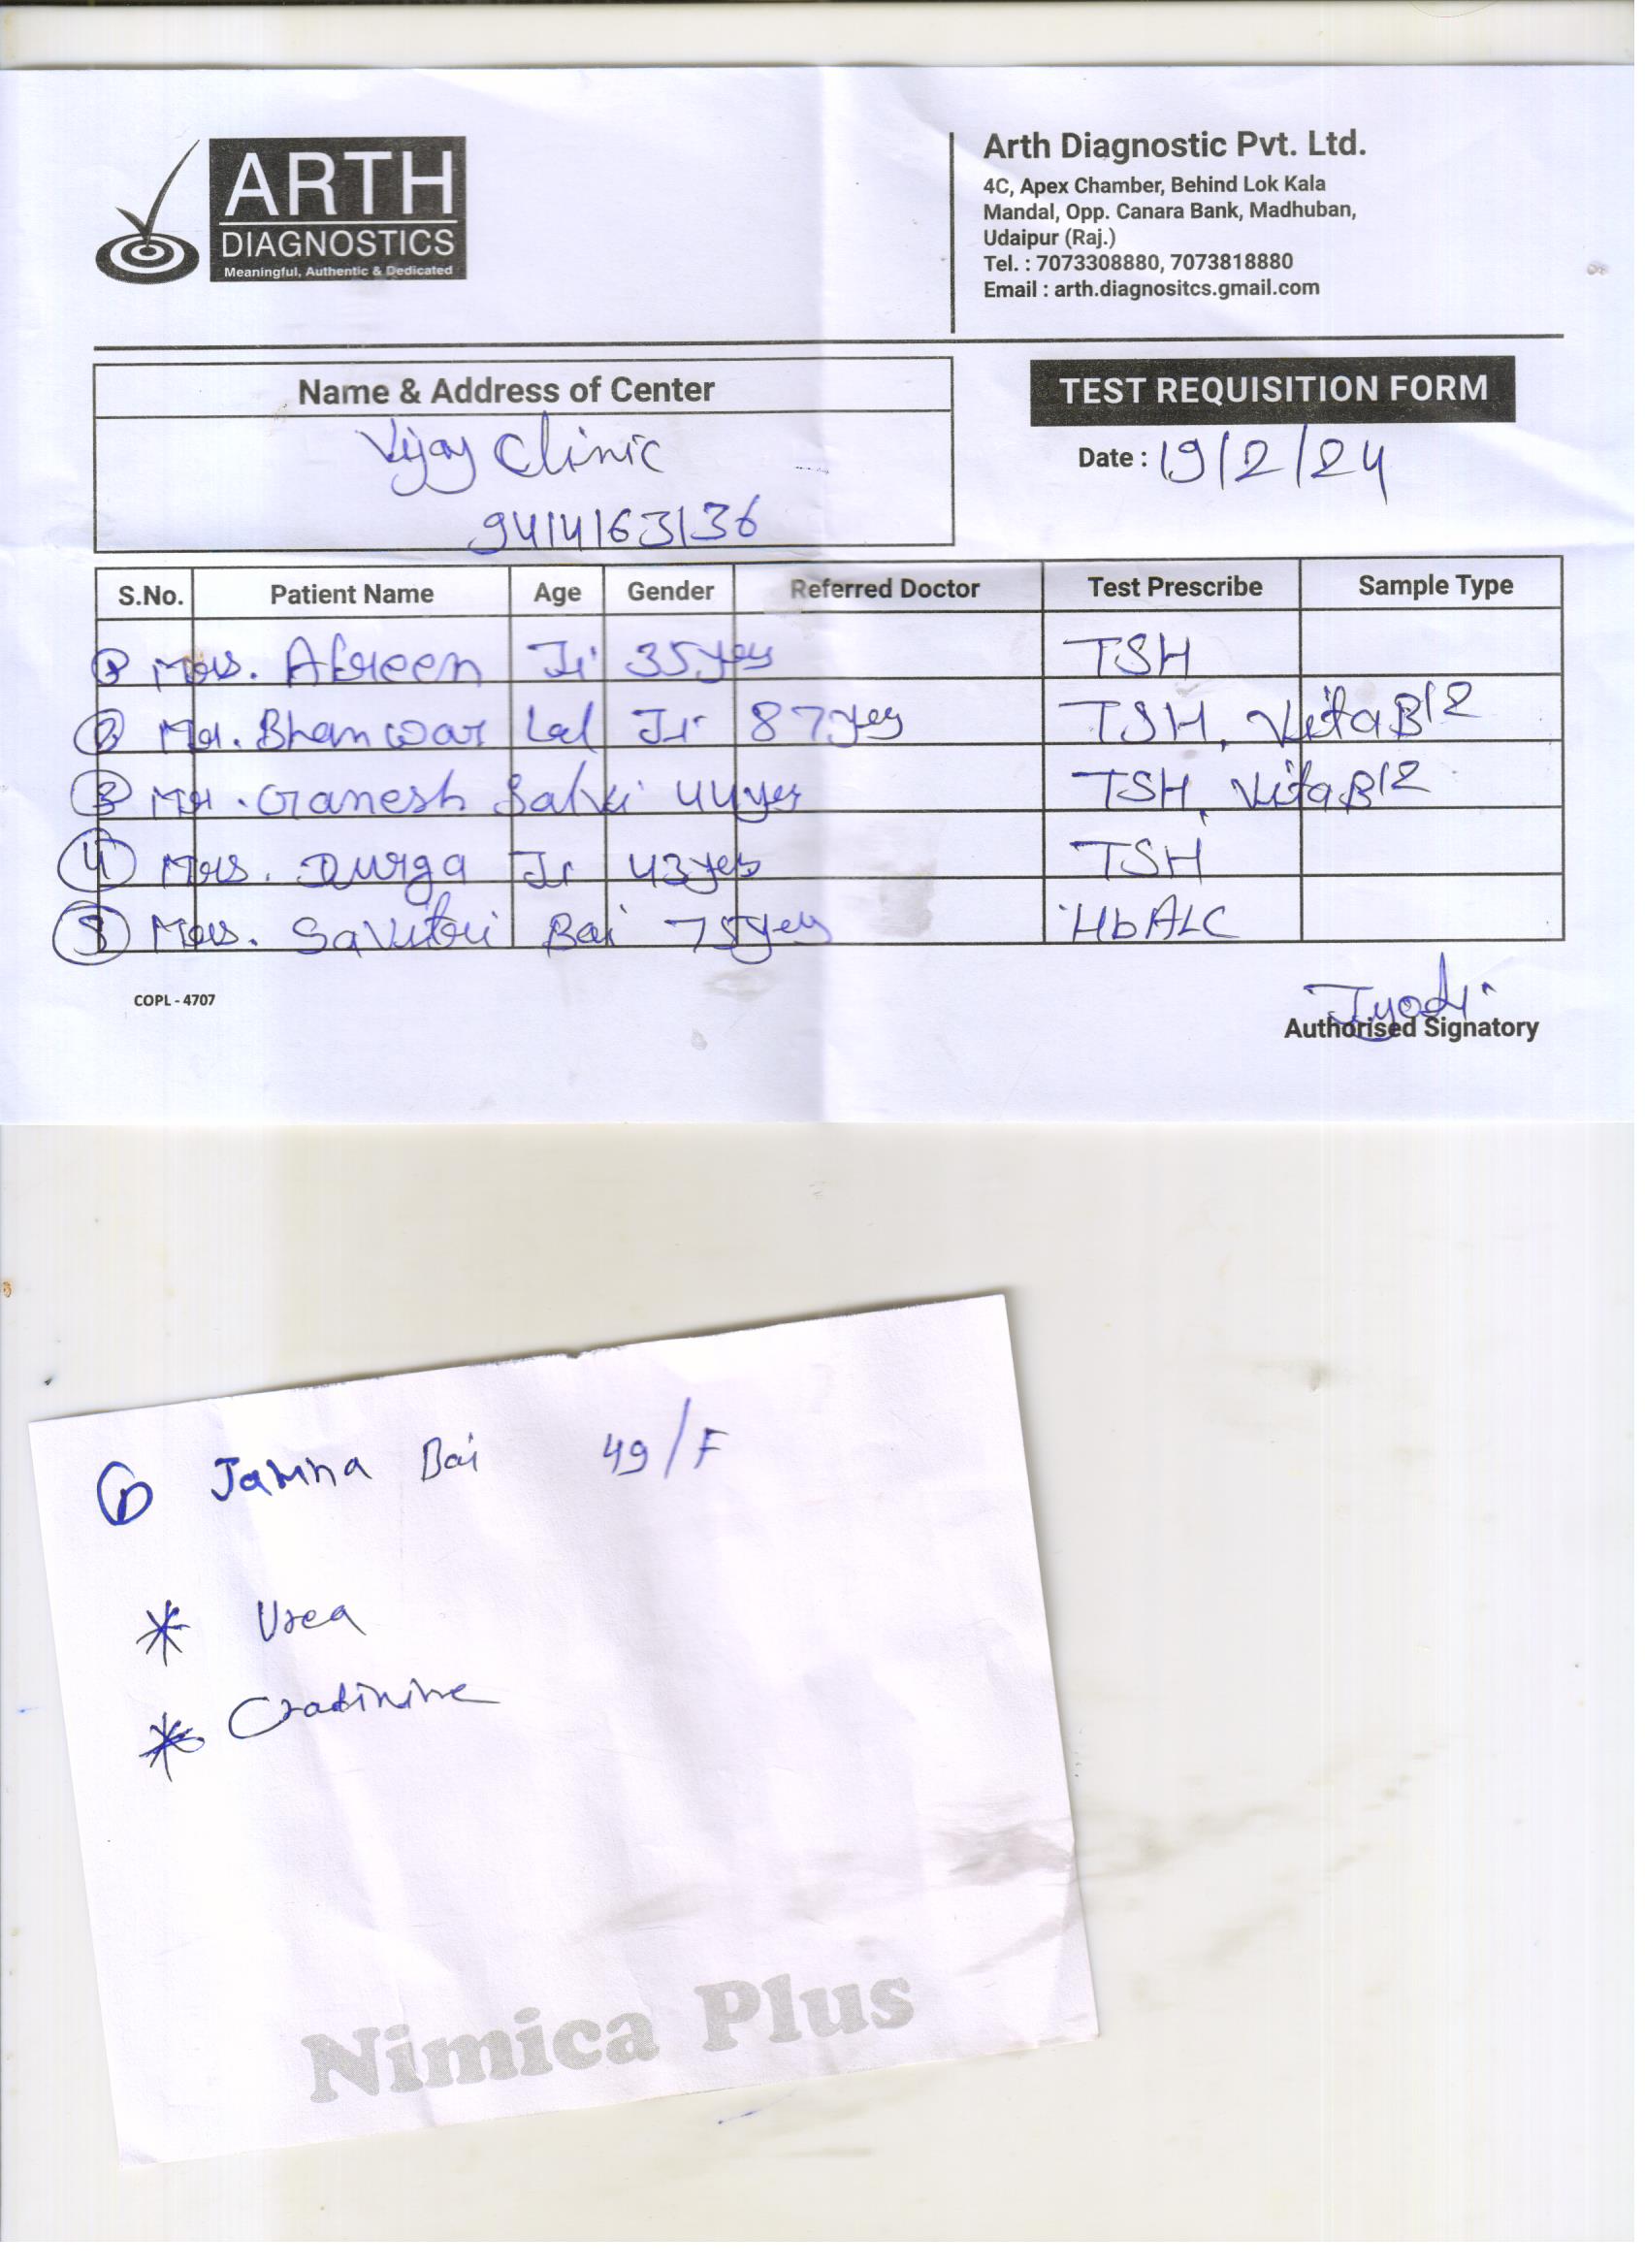 ARTH
DIAGNOSTICS
Meaningful, Authentic & Dedicated
Arth Diagnostic Pvt. Ltd.
4C, Apex Chamber, Behind Lok Kala
Mandal, Opp. Canara Bank, Madhuban,
Udaipur (Raj.)
Tel. : 7073308880, 7073818880
Email : arth.diagnositcs.gmail.com
Name & Address of Center
TEST REQUISITION FORM
Vijay Clinic
9414163136
Date : 19/2/24
S.No. Patient Name Age Gender Referred Doctor Test Prescribe Sample Type
1 Mrs. Afreen Ji 35 yrs TSH
2 Mr. Bhanwar Lal Ji 87 yrs TSH, Vita B12
3 Mr. Ganesh Salvi 44 yrs TSH, Vita B12
4 Mrs. Durga Ji 43 yrs TSH
5 Mrs. Savitri Bai 75 yrs HbA1C
COPL - 4707
Jyoti
Authorised Signatory
6 Jamna Bai 49/F
* Urea
* Cratinine
Nimica Plus